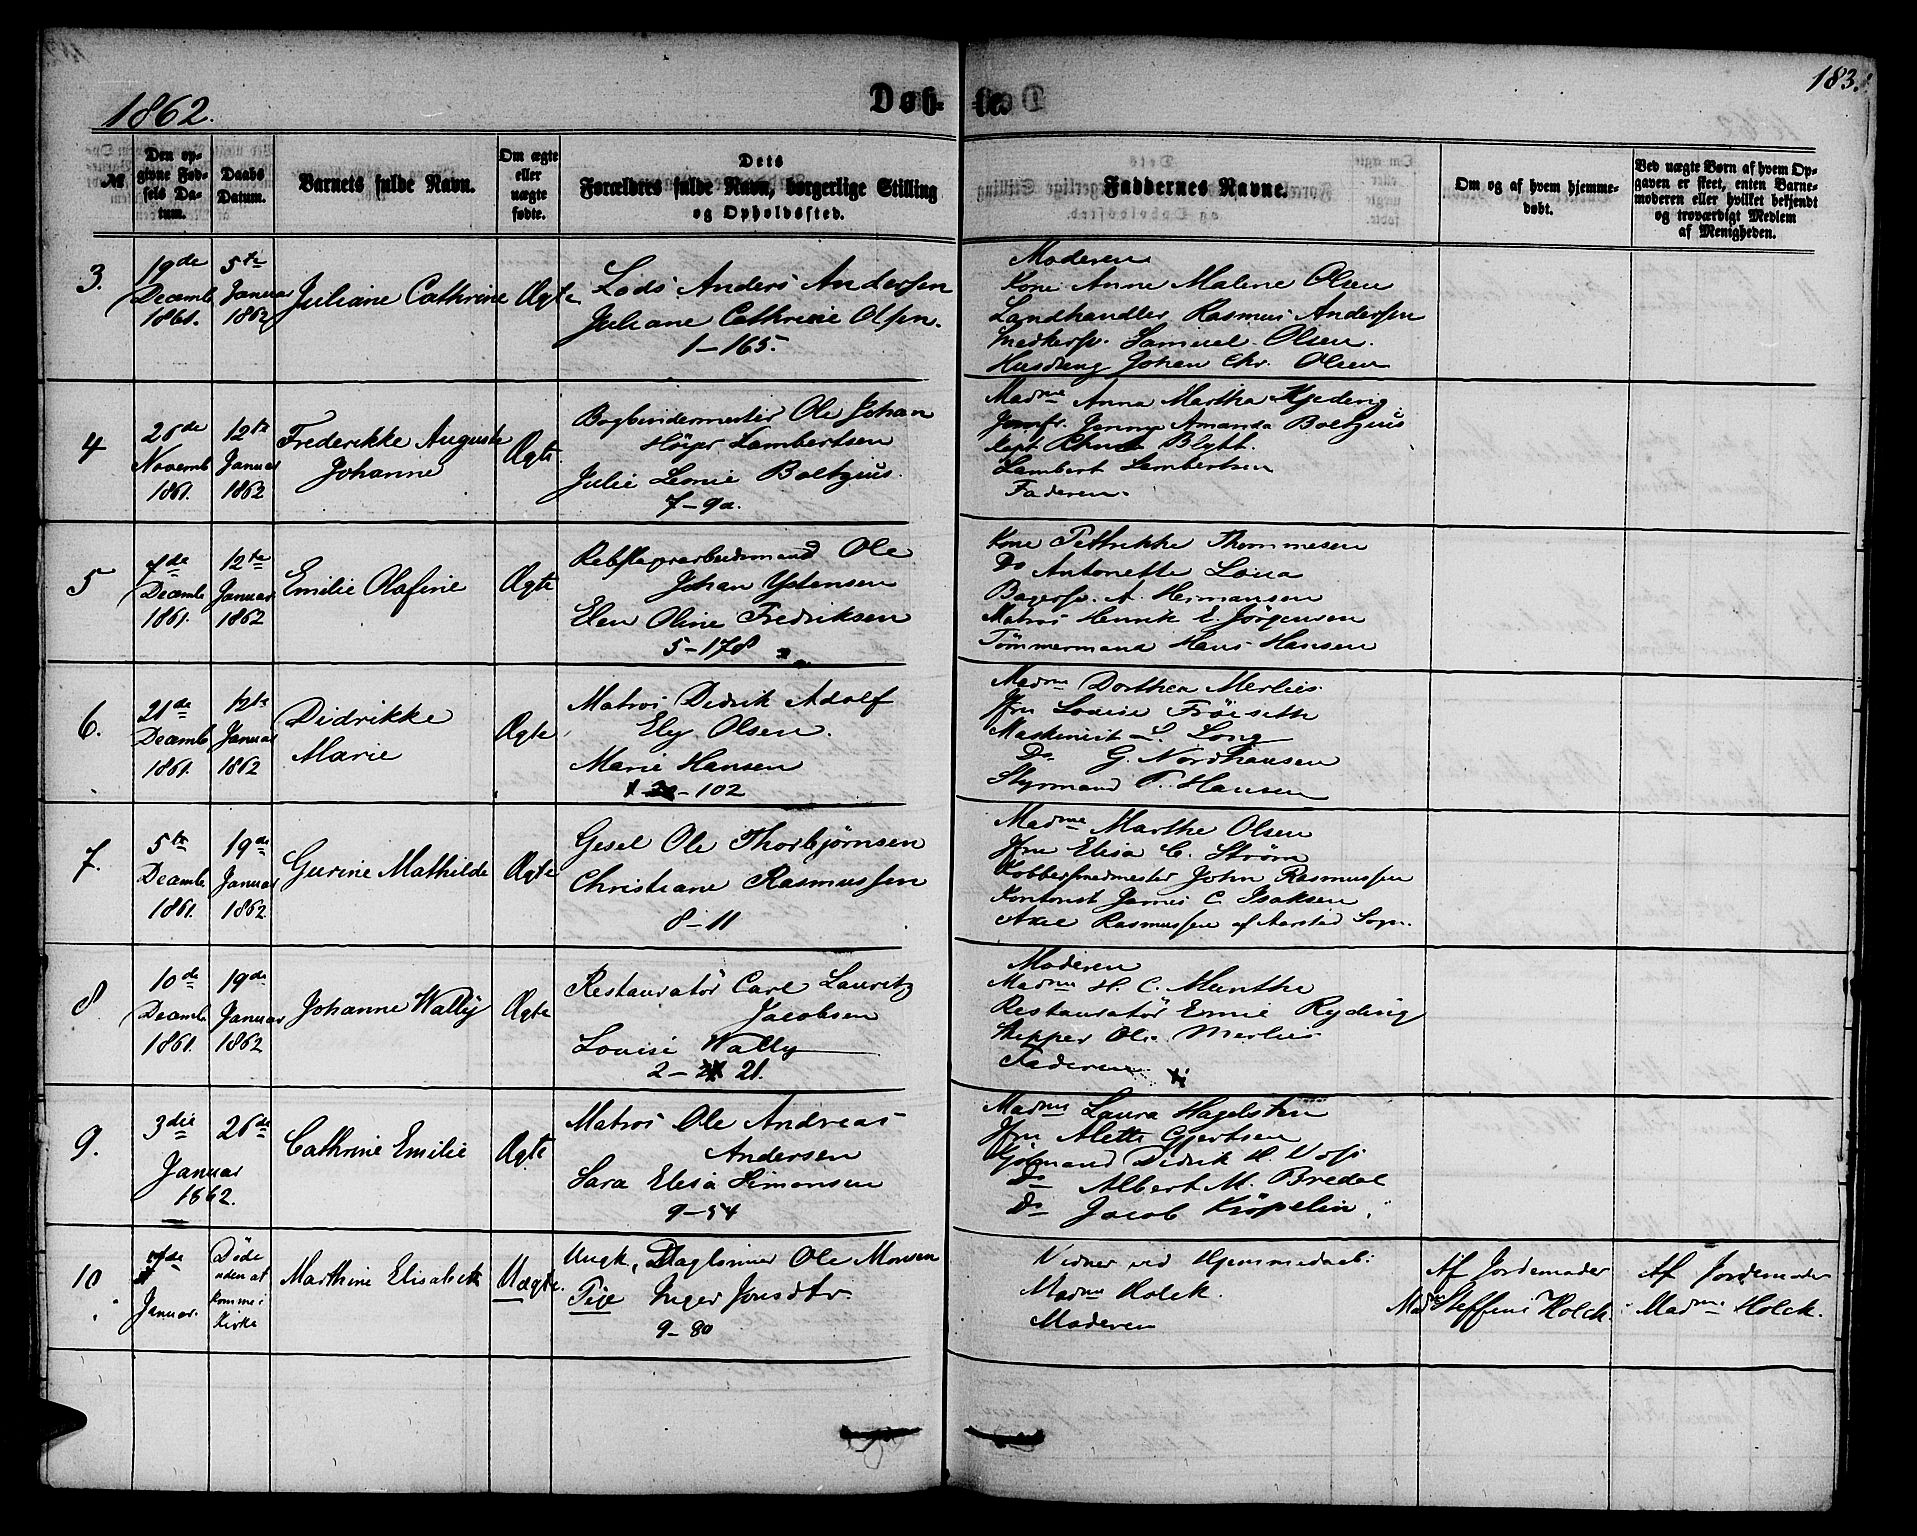 1862.
Døb-
te.
183.
№
Den op-
givne Fød-
sels Da-
tum.
Daabs
Datum.
Barnets fulde Navn.
Om ægte
eller
uægte
fødte.
Dets
Forældres fulde Navn, borgerlige Stilling
og Opholdssted.
Faddernes Navne.
Om og af hvem hjemme-
døbt.
Ved uægte Børn af hvem Op-
gaven er skeet, enten Barne-
moderen eller hvilket bekjendt
og troværdigt Medlem
af Menigheden.
3.
19de
Decemb
1861.
5te
Januar
1862
Juliane Cathrine
Ægte
Lods Anders Andersen
Juliane Cathrine Olsen.
1-165.
Moderen
Kone Anne Malene Olsen
Landhandler Rasmus Andersen
Samuel Olsen.
Johan Chr. Olsen
4
26de
Novemb
1861.
12te
Januar
1862
Frederikke Auguste
Johanne
Ægte
Bogbindermester Ole Johan
Lambertsen
Julie Leonie Boltzius.
7-9a.
Madme Anna Martha
Jomfr. Jenny Amanda Boltzius
Blytt.
Lambert Lambertsen
Faderen.
5
7de
Decemb
1861.
12te
Januar
1862
Emilie Olafine
Ægte
Rebslagerarbeidsmand Ole
Johan Ystensen
Elen Oline Fredriksen
5-178
Kone Petrikke Thommesen
Do Antonette
A. Hermansen
Matros Henrik E. Jørgensen
Tømmermand Hans Hansen
6.
21de
Decemb
1861.
12te
Januar
1862
Didrikke
Marie
Ægte
Matros Didrik Adolf
Ely Olsen.
Marie Hansen
1-102
Madme Dorthea Merlies.
Jfru Louise Frøiseth
Maskinist L. Long
Do G. Nordhausen
Styrmand T. Hansen
7.
5te
Decemb
1861.
19de
Januar
1862
Gurine Mathilde
Ægte
Gesel Ole Thorbjørnsen
Christiane Rasmussen
8-11
Madme Marthe Olsen
Jfru Elisa C. Strøm
Kobbersmedmester John Rasmussen
Kontorist James C. Isaksen
Axel Rasmussen af Aarstad Sogn.
8
10de
Decemb
1861.
19de
Januar
1862
Johanne Wally
Ægte
Restauratør Carl Lauritz
Jacobsen
Louise Wally
2-21.
Moderen
Madme H. C. Munthe
Restauratør Emil Ryding
Skipper Ole Merlies
Faderen
9.
3die
Januar
1862.
26de
Cathrine Emilie
Ægte
Matros Ole Andreas
Andersen
Sara Elisa Simonsen
9-54
Madme Laura Hagelsten
Jfru Alette Gjertsen
Didrik H. Voss
Do Albert M. Bredal
Do Jacob Krøpelin.
10
7de
Januar.
Døde
uden at
komme i
Kirke
Marthine Elisabeth
Uægte.
Ungk. Dagleier Ole Monsen
Pige Inger Jonsdtr.
9-80
Vidner ved Hjemmedaab:
Madme Holck.
Moderen
Af Jordemoder
Madme Steffine Holck.
Af Jordemoder
Madme Holck.